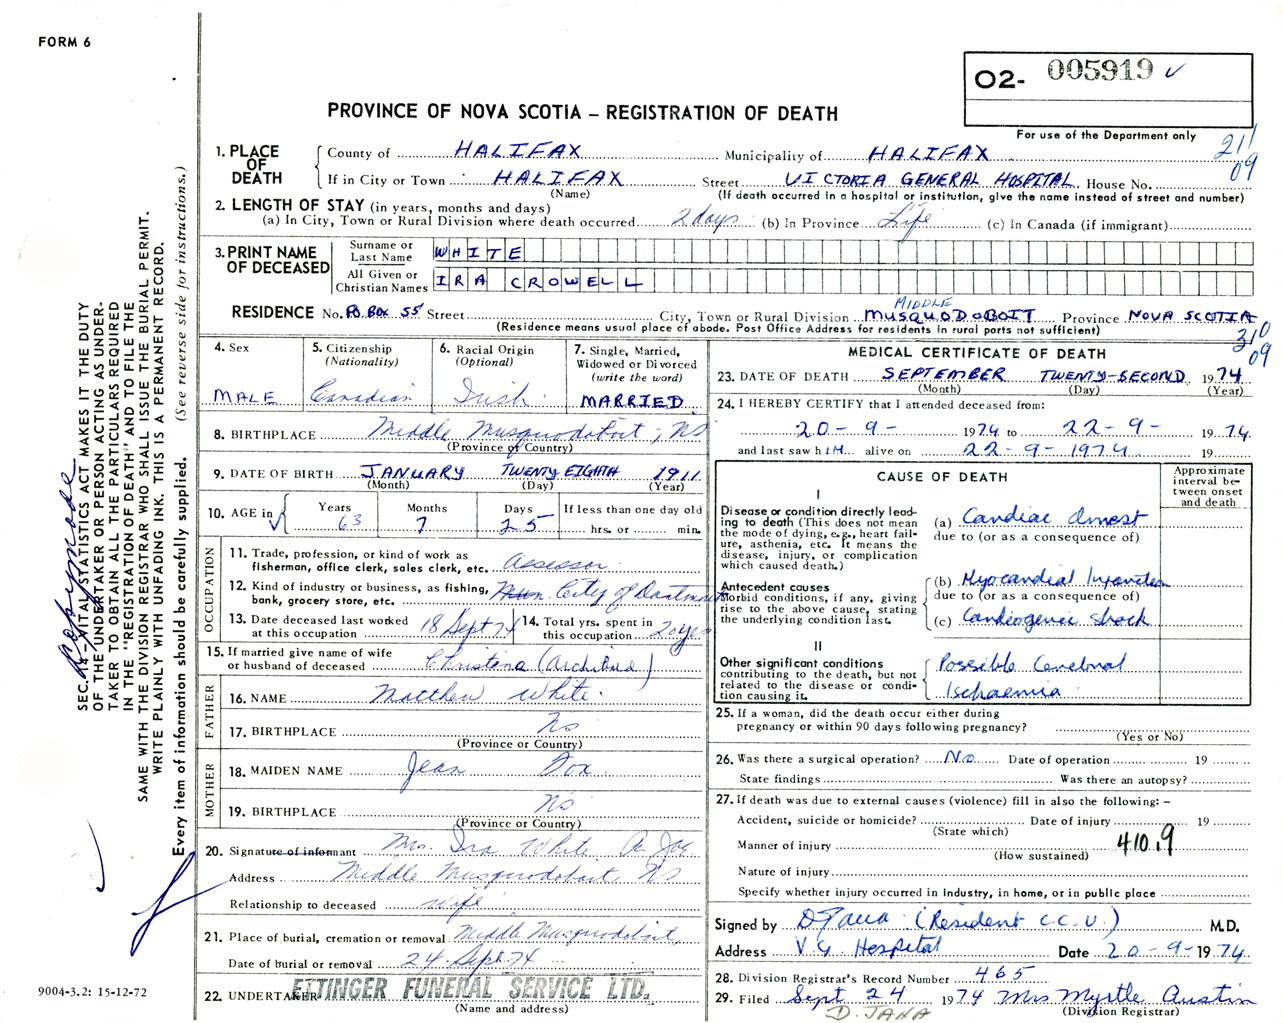 FORM 6
O2- 005919 ✓
PROVINCE OF NOVA SCOTIA – REGISTRATION OF DEATH
For use of the Department only
211
09
1. PLACE OF DEATH
County of HALIFAX Municipality of HALIFAX
If in City or Town HALIFAX Street VICTORIA GENERAL HOSPITAL House No.
(Name) (If death occurred in a hospital or institution, give the name instead of street and number)
2. LENGTH OF STAY (in years, months and days)
(a) In City, Town or Rural Division where death occurred 2 days (b) In Province Life (c) In Canada (if immigrant)
3. PRINT NAME OF DECEASED
Surname or Last Name WHITE
All Given or Christian Names IRA CROWELL
RESIDENCE No. PO BOX 55 Street City, Town or Rural Division MIDDLE MUSQUODOBOIT Province NOVA SCOTIA
(Residence means usual place of abode. Post Office Address for residents in rural parts not sufficient)
310
09
4. Sex MALE
5. Citizenship (Nationality) Canadian
6. Racial Origin (Optional) Irish
7. Single, Married, Widowed or Divorced (write the word) MARRIED
8. BIRTHPLACE Middle Musquodoboit, NS
(Province or Country)
9. DATE OF BIRTH JANUARY TWENTY EIGHTH 1911
(Month) (Day) (Year)
10. AGE in ✓ Years 63 Months 7 Days 25 If less than one day old hrs. or min.
OCCUPATION
11. Trade, profession, or kind of work as fisherman, office clerk, sales clerk, etc. Assessor
12. Kind of industry or business, as fishing, bank, grocery store, etc. City of Dartmouth
13. Date deceased last worked at this occupation 18 Sept 74
14. Total yrs. spent in this occupation 20 yrs
15. If married give name of wife or husband of deceased Christena (Archibald)
FATHER
16. NAME Matthew White
17. BIRTHPLACE NS
(Province or Country)
MOTHER
18. MAIDEN NAME Jean Fox
19. BIRTHPLACE NS
(Province or Country)
20. Signature of informant Mrs. Ira White
Address Middle Musquodoboit, NS
Relationship to deceased wife
21. Place of burial, cremation or removal Middle Musquodoboit,
Date of burial or removal 24 Sept. 74
22. UNDERTAKER ETTINGER FUNERAL SERVICE LTD.
(Name and address)
MEDICAL CERTIFICATE OF DEATH
23. DATE OF DEATH SEPTEMBER TWENTY-SECOND 1974
(Month) (Day) (Year)
24. I HEREBY CERTIFY that I attended deceased from:
20 - 9 - 1974 to 22 - 9 - 1974
and last saw him alive on 22 - 9 - 1974
CAUSE OF DEATH
Approximate interval between onset and death
I
Disease or condition directly leading to death (This does not mean the mode of dying, e.g., heart failure, asthenia, etc. It means the disease, injury, or complication which caused death.)
(a) Cardiac Arrest
due to (or as a consequence of)
Antecedent causes
Morbid conditions, if any, giving rise to the above cause, stating the underlying condition last.
(b) Myocardial Infarction
due to (or as a consequence of)
(c) Cardiogenic Shock
II
Other significant conditions contributing to the death, but not related to the disease or condition causing it.
Possible Cerebral
Ischaemia
25. If a woman, did the death occur either during pregnancy or within 90 days following pregnancy?
(Yes or No)
26. Was there a surgical operation? No Date of operation 19
State findings Was there an autopsy?
27. If death was due to external causes (violence) fill in also the following: –
Accident, suicide or homicide? Date of injury 19
(State which)
Manner of injury 410.9
(How sustained)
Nature of injury
Specify whether injury occurred in industry, in home, or in public place
Signed by (Resident C.C.U.) M.D.
Address V.G Hospital Date 20 - 9 - 1974
28. Division Registrar's Record Number 465
29. Filed Sept 24 1974 Mrs Myrtle Austin
(Division Registrar)
D. JANA
SEC. 14 VITAL STATISTICS ACT MAKES IT THE DUTY
OF THE UNDERTAKER OR PERSON ACTING AS UNDER-
TAKER TO OBTAIN ALL THE PARTICULARS REQUIRED
IN THE "REGISTRATION OF DEATH" AND TO FILE THE
SAME WITH THE DIVISION REGISTRAR WHO SHALL ISSUE THE BURIAL PERMIT.
WRITE PLAINLY WITH UNFADING INK. THIS IS A PERMANENT RECORD.
Every item of information should be carefully supplied. (See reverse side for instructions.)
Copy made
9004-3.2: 15-12-72